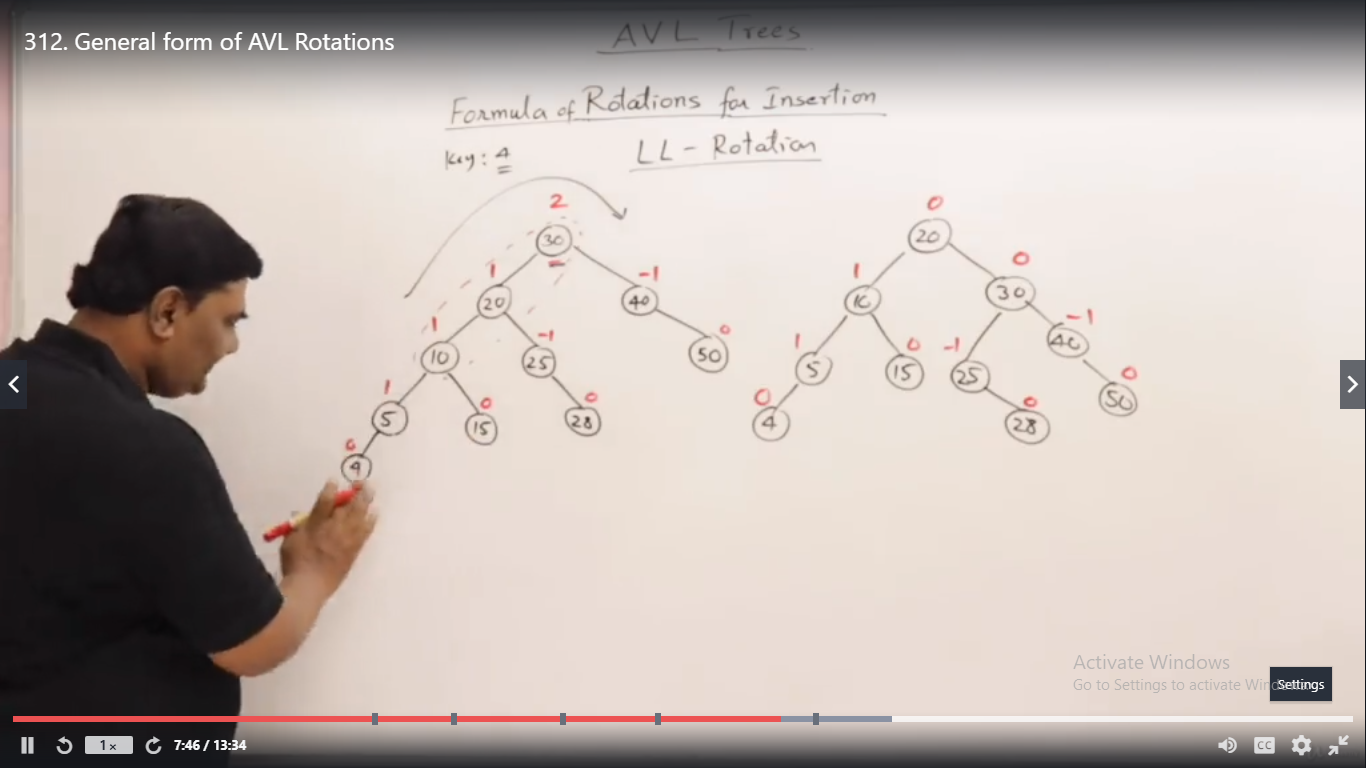 312. General form of AVL Rotations
AVL Trees
Formula of Rotations for Insertion
Key: 4
LL - Rotation
2
30
1
20
-1
40
1
10
-1
25
0
50
1
5
0
15
0
28
0
4
0
20
1
10
0
30
1
5
0
15
-1
25
-1
40
0
4
0
28
0
50
Activate Windows
Go to Settings to activate Windows.
Settings
1x
7:46 / 13:34
CC